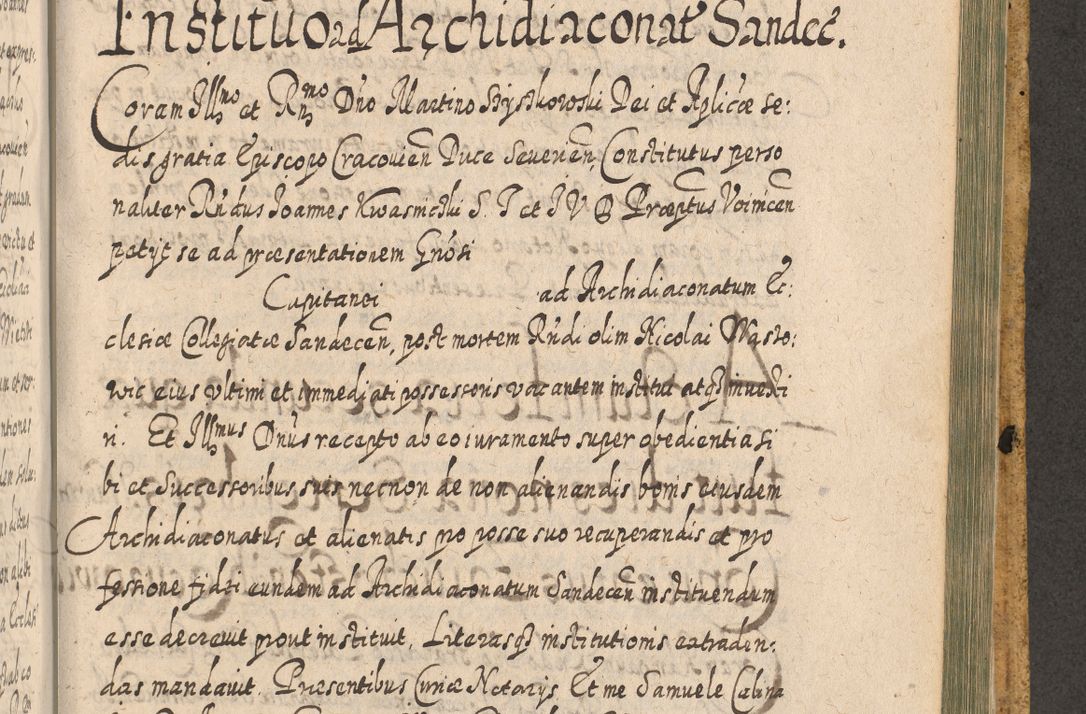 Institutio ad Archidiaconat Sandec.
Coram Illmo et Rmo Dno Martino Szyszkowski Dei et Aplicæ se:
dis gratia Episcopo Cracovien Duce Severien, Constitutus perso
naliter Rndus Joannes Kwasnicki S. T et J V D Præptus Voinicen
petyt se ad præsentationem Gnosi
Capitanei ad Archidiaconatum Ec:
clesiæ Collegiatæ Sandecen, post mortem Rndi olim Nicolai Wasto:
wic eius ultimi et immediati possessoris vacantem institui atqȝ investi
ri. Et Illmus Dnus recepto ab eo iuramento super obedientia si
bi et Successoribus suis necnon de non alienandis bonis eiusdem
Archidiaconatus et alienatis pro posse suo recuperandis et pro
fessione fidei eundem ad Archidiaconatum Sandecen instituendum
esse decrevit prout instituit, Literasqȝ institutionis extraden:
das mandavit. Præsentibus Curiæ Notarys Et me Samuele